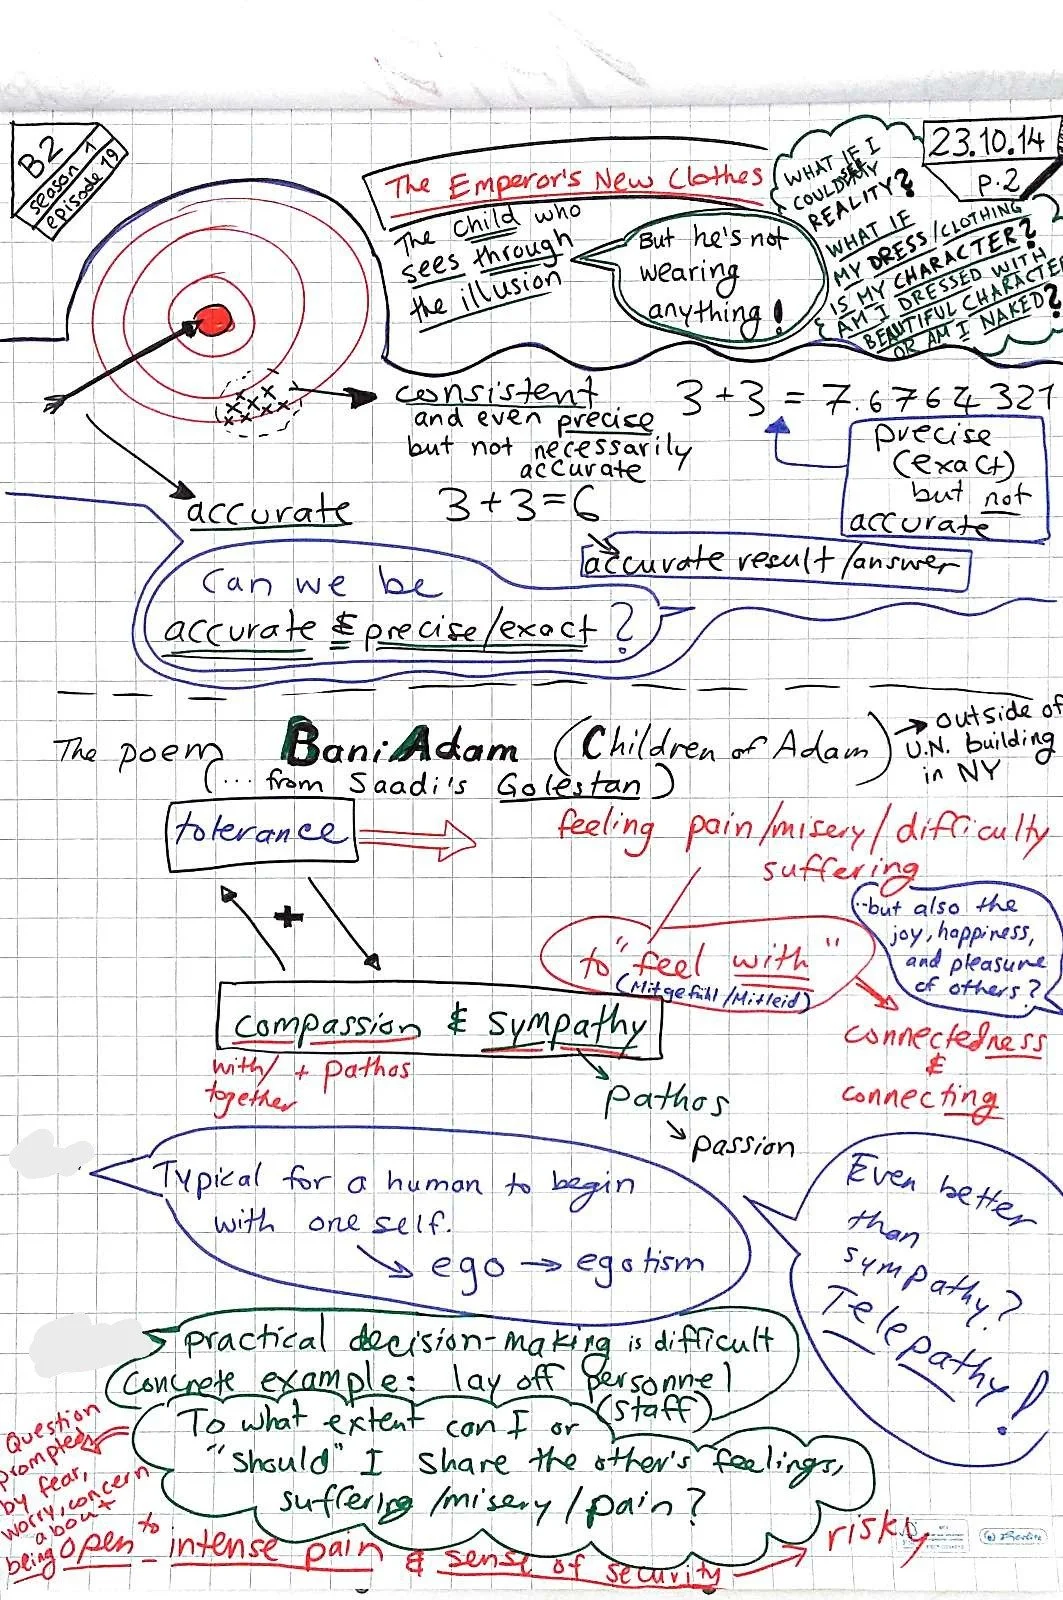 B2
season 1
episode 19
23.10.14
p.2
The Emperor's New Clothes
The child who
sees through
the illusion
But he's not
wearing
anything!
WHAT IF I
COULD SEE MY
REALITY?
WHAT IF
MY DRESS/CLOTHING
IS MY CHARACTER?
AM I DRESSED WITH
BEAUTIFUL CHARACTER
OR AM I NAKED?
consistent
and even precise
but not necessarily
accurate
3+3 = 7.6764321
precise
(exact)
but not
accurate
accurate
3+3=6
accurate result/answer
Can we be
accurate & precise/exact?
The poem Bani Adam (Children of Adam)
(... from Saadi's Golestan)
outside of
U.N. building
in NY
tolerance
feeling pain/misery/difficulty
suffering
+
to "feel with"
(Mitgefühl/Mitleid)
...but also the
joy, happiness,
and pleasure
of others?
compassion & sympathy
with/
together
+ pathos
pathos
passion
connectedness
&
connecting
Typical for a human to begin
with oneself.
ego → egotism
Even better
than
sympathy?
Telepathy!
practical decision-making is difficult
concrete example: lay off personnel
(staff)
To what extent can I or
"should" I share the other's feelings,
suffering/misery/pain?
Question
prompted
by fear,
worry, concern
about
being open to intense pain & sense of security → risky